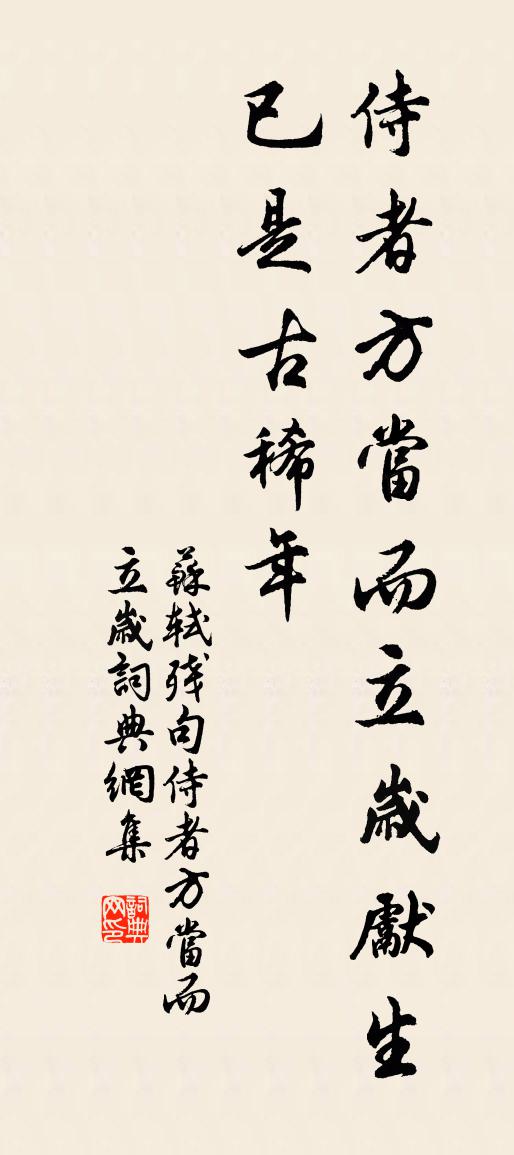 侍者方當而立歲獻生
已是古稀年
蘇軾殘句侍者方當而
立歲詞典網集
詞典
网印